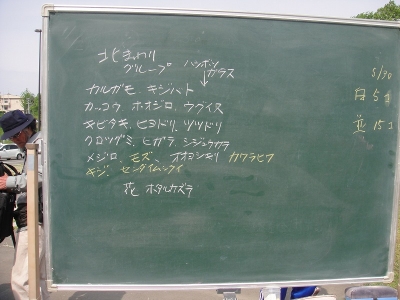 北まわり
グループ ハシボソ
ガラス
カルガモ キジバト
カッコウ ホオジロ ウグイス
キビタキ、ヒヨドリ、ツツドリ
クロツグミ、ヒガラ、シジュウカラ
メジロ、モズ、オオヨシキリ カワラヒワ
キジ、センダイムシクイ
花 ホタルカズラ
5/30
白 5
並 15コ